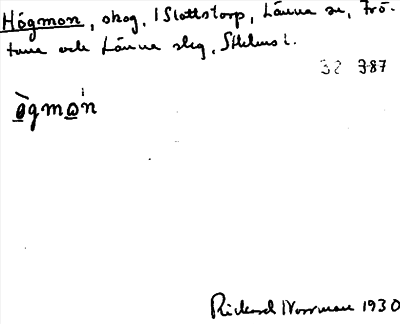 Högmon, skog, i Slottstorp, Länna sn, Frö-
tuna och Länna slg, Sthlms l.
32 387
øgmωn
Rickard Norrman 1930